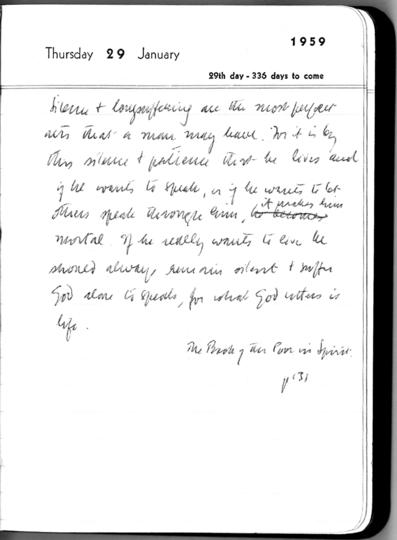 1959
Thursday 29 January
29th day - 336 days to come
Silence + longsuffering are the most perfect
acts that a man may have. For it is by
this silence + patience that he lives and
if he wants to speak, or if he wants to let
others speak through him, it makes him
mortal. If he really wants to live he
should always remain silent + suffer
God alone to speak, for what God utters is
life.
The Book of the Poor in Spirit.
p 131